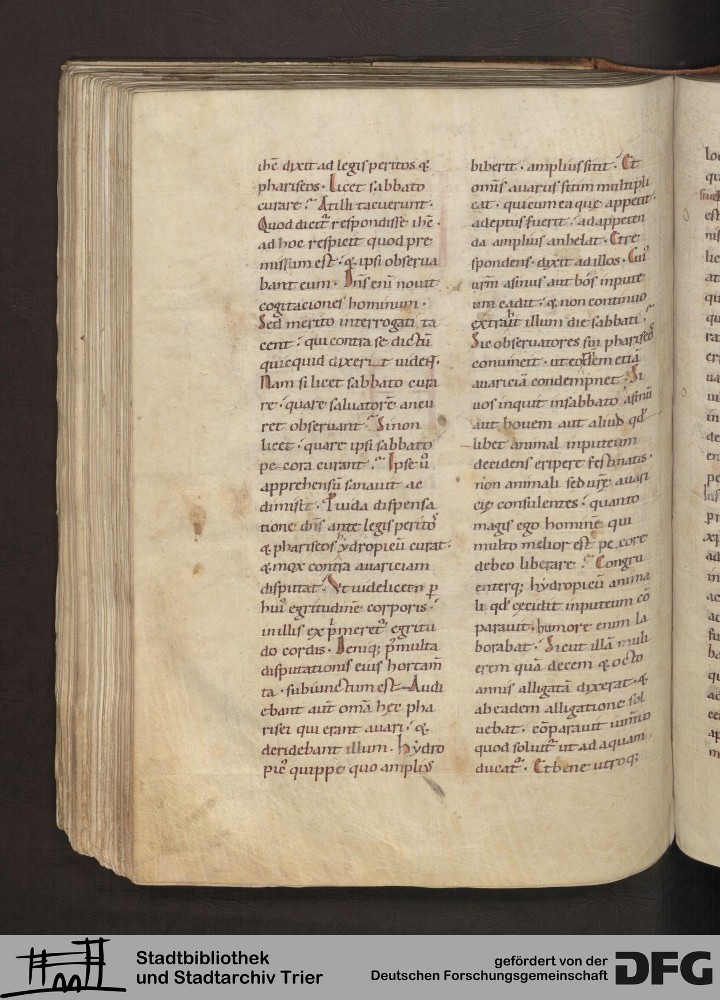 ihc̄ dixit ad legis peritos &
phariseos · Licet sabbato
curare ? At illi tacuerunt ·
Quod dicit̄ respondisse ihc̄ ·
ad hoc respicit quod pre
missum est · & ipsi observa
bant eum · Ihs eni novit
cogitaciones hominum ·
Sed merito interrogati ta
cent · qui contra se dictū
quicquid dixerint vident ·
Nam si licet sabbato cura
re · quare salvatorē ancu
ret observant ? Si non
licet · quare ipsi sabbato
pecora curant ? Ipse ū
apprehensū sanavit ac
dimisit · Tuida dispensa
tione dn̄s ante legis peritos
& phariseos ydropicū curat ·
& mox contra avariciam
disputat · Ut videlicet n̄ p̱
huī egritudinē corporis ·
in illis exp̄meret̄ egritu
do cordis · Deniq; p̄ multa
disputationis eius hortam̄
ta · subiunctum est · Audi
ebant aut̄ om̄a hec pha
risei qui erant avari · &
deridebant illum · hydro
picꝰ quippe quo ampliꝰ
biberit · amplius sitit · Et
omīs avarus sitim multipli
cat · qui cum ea que appetit ·
adeptus fuerit · ad appeten
da amplius anhelat · Et re
spondens · dixit ad illos · Cuiꝰ
vr̄m asinus aut bos in pute
um cadit · & non continuo
extrahit illum die sabbati ?
Sic observatores sui phariseos
convincit · ut eosdem etiā
avariciā condempnet · Si
vos inquit in sabbato asinū
aut bovem aut aliud qd̄
libet animal in puteum
decidens eripere festinatis ·
non animali sed vr̄e avari
cie consulentes · quanto
magis ego hominē qui
multo melior est pecore
debeo liberare ? Congru
enterq; hydropicū anima
li qd̄ cecidit in puteum cō
paravit · humore enim la
borabat · Sicut illā muli
erem quā decem & octo
annis alligatā dixerat · &
ab eadem alligatione sol
vebat · cōparavit iumto
quod solvit̄ ut ad aquam
ducat̄ · Et bene utroq;
Stadtbibliothek
und Stadtarchiv Trier
gefördert von der
Deutschen Forschungsgemeinschaft
DFG